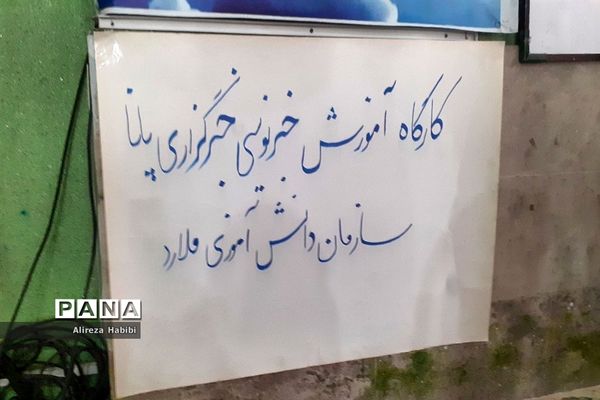 کارگاه آموزش خبرنویسی خبرگزاری پانا
سازمان دانش آموزی ملارد
PANA
Alireza Habibi
PANA